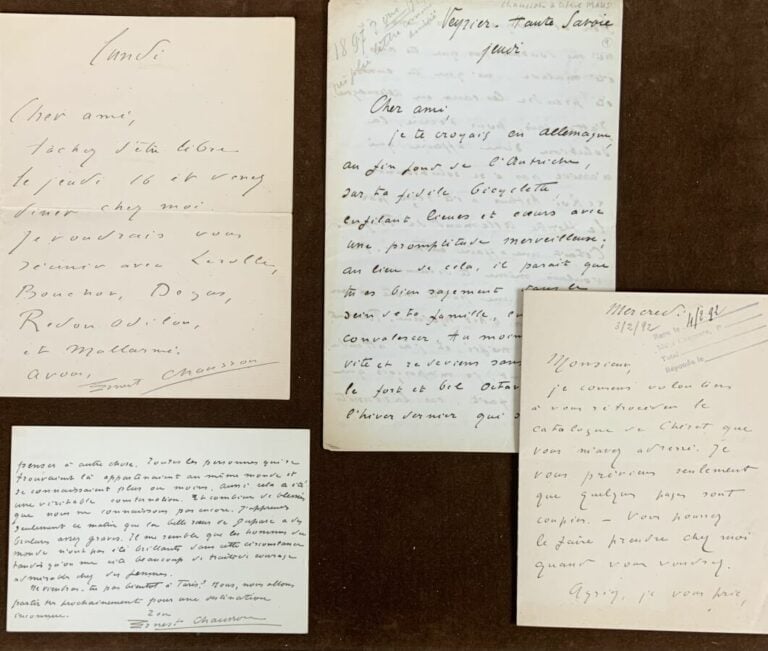 Lundi
Cher ami,
tachez d'être libre
le jeudi 16 et venez
diner chez moi.
Je voudrais vous
réunir avec Lerolle,
Bouchor, Degas,
Redon Odilon,
et Mallarmé.
a vous,
Ernest Chausson
1897?
Chausson à Octave MAUS
Veyrier - Haute Savoie
jeudi
Cher ami
je te croyais en allemagne,
au fin fond de l'Autriche,
sur ta fidèle bicyclette
enfilant lieues et cœurs avec
une promptitude merveilleuse.
au lieu de cela, il parait que
tu es bien sagement dans le
sein de ta famille, en
convalescer tu moins
vite et redeviens sans
le fort et bel Octav
l'hiver dernier qui s
penser à autre chose. Toutes les personnes qui se
trouvaient là appartenaient au même monde et
se connaissaient plus ou moins. Aussi cela a été
une véritable consternation. Et combien de blessés
que nous ne connaissons pas encore. J'apprends
seulement ce matin que la belle sœur de Duparc a des
brulures assez graves. Il me semble que les hommes du
monde n'ont pas été brillants dans cette circonstance
tandis qu'on me cite beaucoup de traits de courage
admirable chez des femmes.
Reviendras-tu pas bientôt à Paris? Nous, nous allons
partir très prochainement pour une destination
inconnue.
Ton
Ernest Chausson
Mercredi
3/2/92
4/2 92
Répondu le
Monsieur,
je consens volontiers
à vous rétrocéder le
catalogue de Chéret que
vous m'avez adressé. Je
vous préviens seulement
que quelques pages sont
coupées. - Vous pouvez
le faire prendre chez moi
quand vous voudrez.
Agréez, je vous prie,